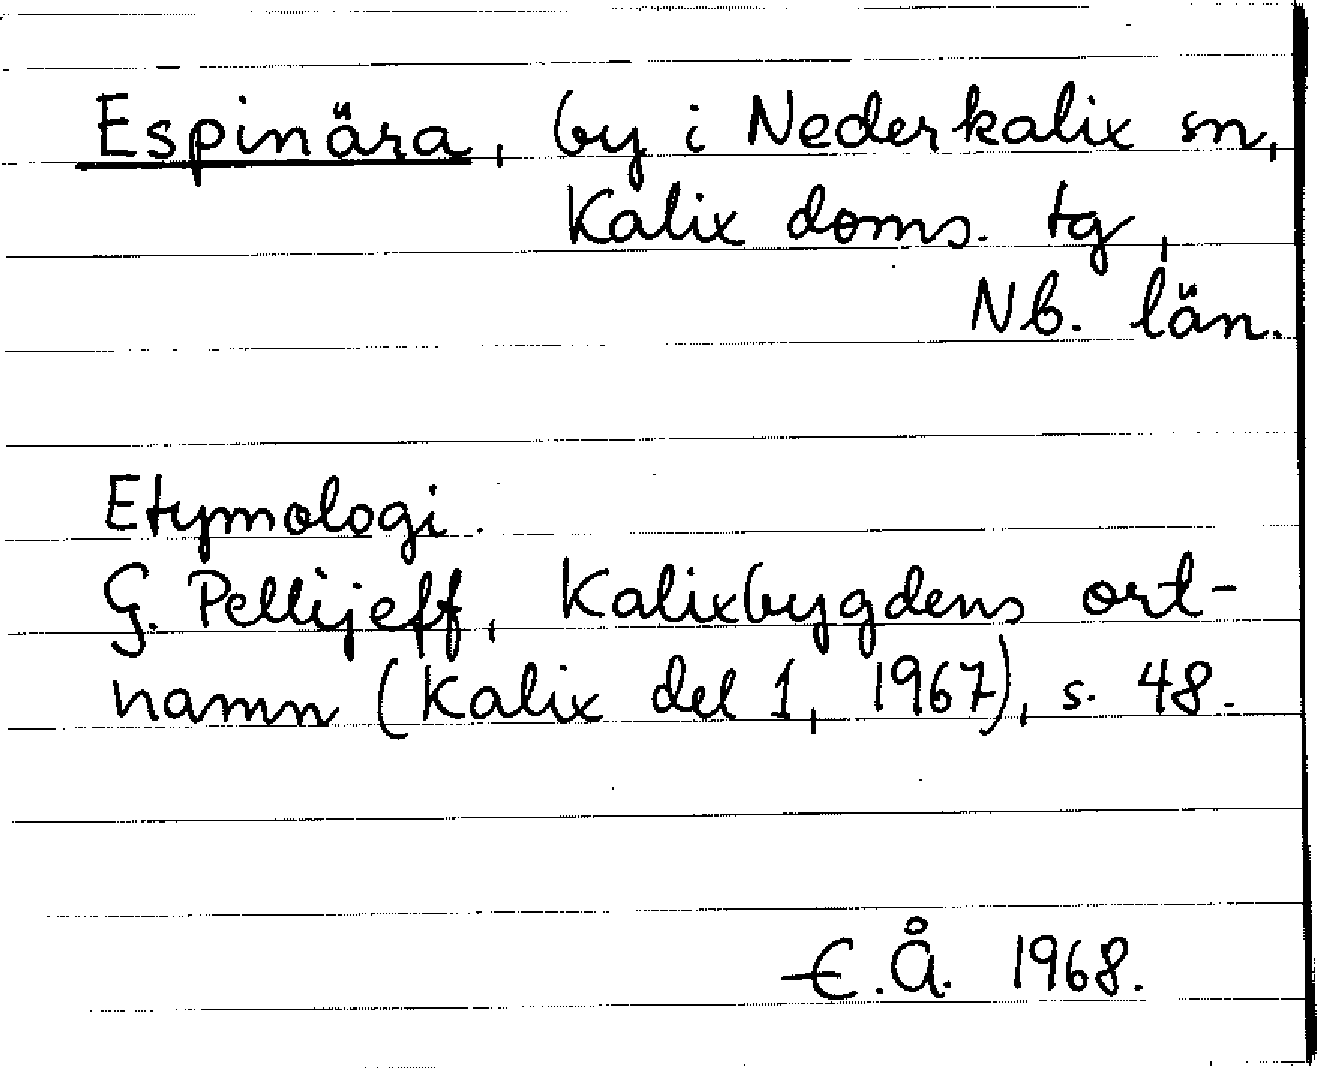 Espinära, by i Nederkalix sn,
Kalix doms. tg,
Nb. län.
Etymologi.
G. Pellijeff, Kalixbygdens ort-
namn (Kalix del 1, 1967), s. 48.
E.Å. 1968.